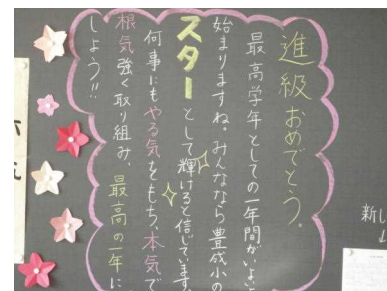 進級おめでとう。
最高学年としての一年間がいよいよ
始まりますね。みんななら豊成小の
スターとして輝けると信じています。
何事にもやる気をもち、本気で
根気強く取り組み、最高の一年に
しよう!!
新し